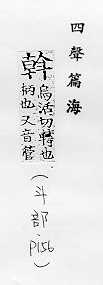 四聲篇海
幹烏活切轉也
柄也又音管
(斗部.p156)